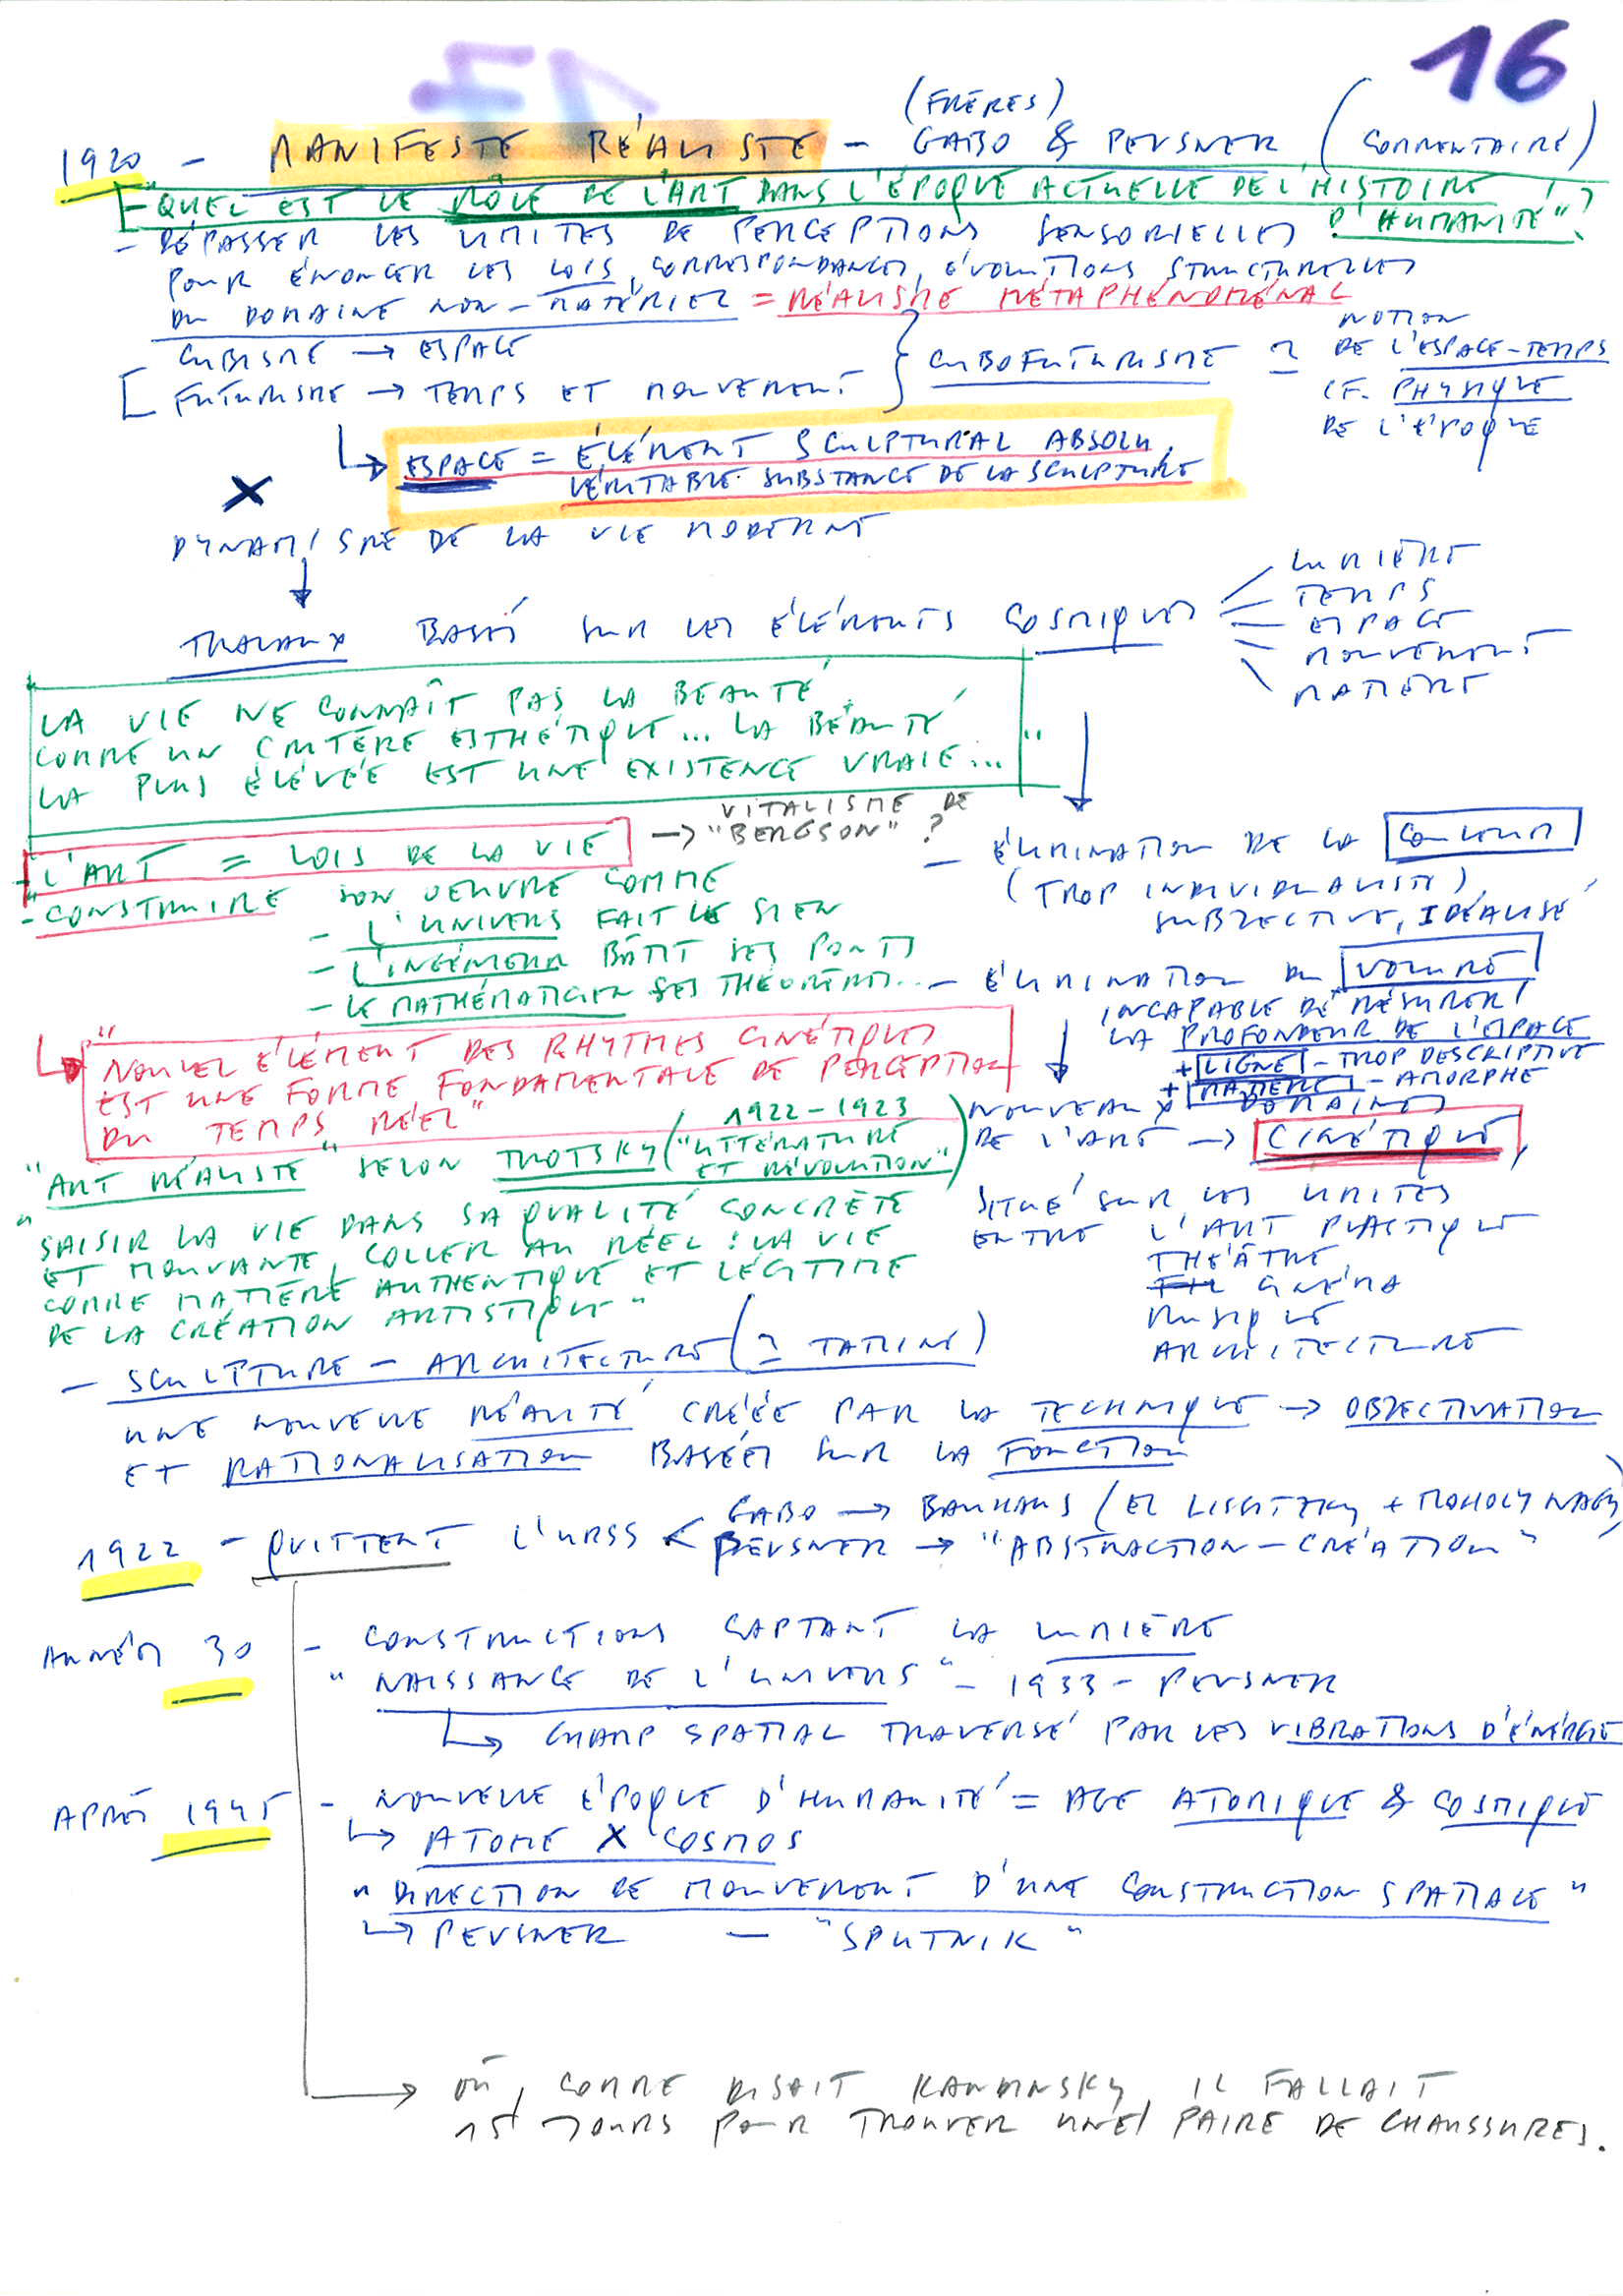 16
(FRÈRES)
1920 - MANIFESTE RÉALISTE - GABO & PEVSNER (COMMENTAIRE)
"QUEL EST LE RÔLE DE L'ART DANS L'ÉPOQUE ACTUELLE DE L'HISTOIRE
D'HUMANITÉ"?
- DÉPASSER LES LIMITES DE PERCEPTIONS SENSORIELLES
POUR ÉNONCER LES LOIS, CORRESPONDANCES, ÉVOLUTIONS STRUCTURELLES
DU DOMAINE NON-MATÉRIEL = RÉALISME MÉTAPHÉNOMÉNAL
CUBISME → ESPACE
FUTURISME → TEMPS ET MOUVEMENT } CUBOFUTURISME ≃
NOTION
DE L'ESPACE-TEMPS
CF. PHYSIQUE
DE L'ÉPOQUE
↳ ESPACE = ÉLÉMENT SCULPTURAL ABSOLU,
VÉRITABLE SUBSTANCE DE LA SCULPTURE
X
DYNAMISME DE LA VIE MODERNE
↓
TRAVAUX BASÉS SUR LES ÉLÉMENTS COSMIQUES
LUMIÈRE
TEMPS
ESPACE
MOUVEMENT
MATIÈRE
LA VIE NE CONNAÎT PAS LA BEAUTÉ
COMME UN CRITÈRE ESTHÉTIQUE... LA BEAUTÉ
LA PLUS ÉLEVÉE EST UNE EXISTENCE VRAIE... "
- L'ART = LOIS DE LA VIE → VITALISME DE
"BERGSON" ?
"- CONSTRUIRE SON OEUVRE COMME
- L'UNIVERS FAIT LE SIEN
- L'INGÉNIEUR BÂTIT SES PONTS
- LE MATHÉMATICIEN SES THÉORÈMES..
↳ "NOUVEL ÉLÉMENT DES RHYTMES CINÉTIQUES
EST UNE FORME FONDAMENTALE DE PERCEPTION
DU TEMPS RÉEL"
- ÉLIMINATION DE LA COULEUR
(TROP INDIVIDUALISTE),
SUBJECTIVE, IDÉALISÉ
- ÉLIMINATION DU VOLUME
INCAPABLE DE MESURER
LA PROFONDEUR DE L'ESPACE
+ LIGNE - TROP DESCRIPTIVE
+ MATIÈRE - AMORPHE
NOUVEAUX DOMAINES
DE L'ART → CINÉTIQUE,
SITUÉ SUR LES LIMITES
ENTRE L'ART PLASTIQUE
THÉÂTRE
CINÉMA
MUSIQUE
ARCHITECTURE
"ART RÉALISTE" SELON TROTSKY (1922-1923
"LITTÉRATURE
ET RÉVOLUTION")
"SAISIR LA VIE DANS SA QUALITÉ CONCRÈTE
ET MOUVANTE, COLLER AU RÉEL : LA VIE
COMME MATIÈRE AUTHENTIQUE ET LÉGITIME
DE LA CRÉATION ARTISTIQUE"
- SCULPTURE - ARCHITECTURE (≃ TATLINE)
UNE NOUVELLE RÉALITÉ CRÉÉE PAR LA TECHNIQUE → OBJECTIVATION
ET RATIONALISATION BASÉES SUR LA FONCTION
1922 - QUITTENT L'URSS < GABO → BAUHAUS (EL LISSITZKY + MOHOLY NAGY)
PEVSNER → "ABSTRACTION-CRÉATION"
ANNÉES 30 - CONSTRUCTIONS CAPTANT LA LUMIÈRE
"NAISSANCE DE L'UNIVERS" - 1933 - PEVSNER
↳ CHAMP SPATIAL TRAVERSÉ PAR LES VIBRATIONS D'ÉNERGIE
APRÈS 1945 - NOUVELLE ÉPOQUE D'HUMANITÉ = AGE ATOMIQUE & COSMIQUE
↳ ATOME X COSMOS
"DIRECTION DE MOUVEMENT D'UNE CONSTRUCTION SPATIALE"
↳ PEVSNER - "SPUTNIK"
→ OÙ, COMME DISAIT KANDINSKY, IL FALLAIT
15 JOURS POUR TROUVER UNE PAIRE DE CHAUSSURES.